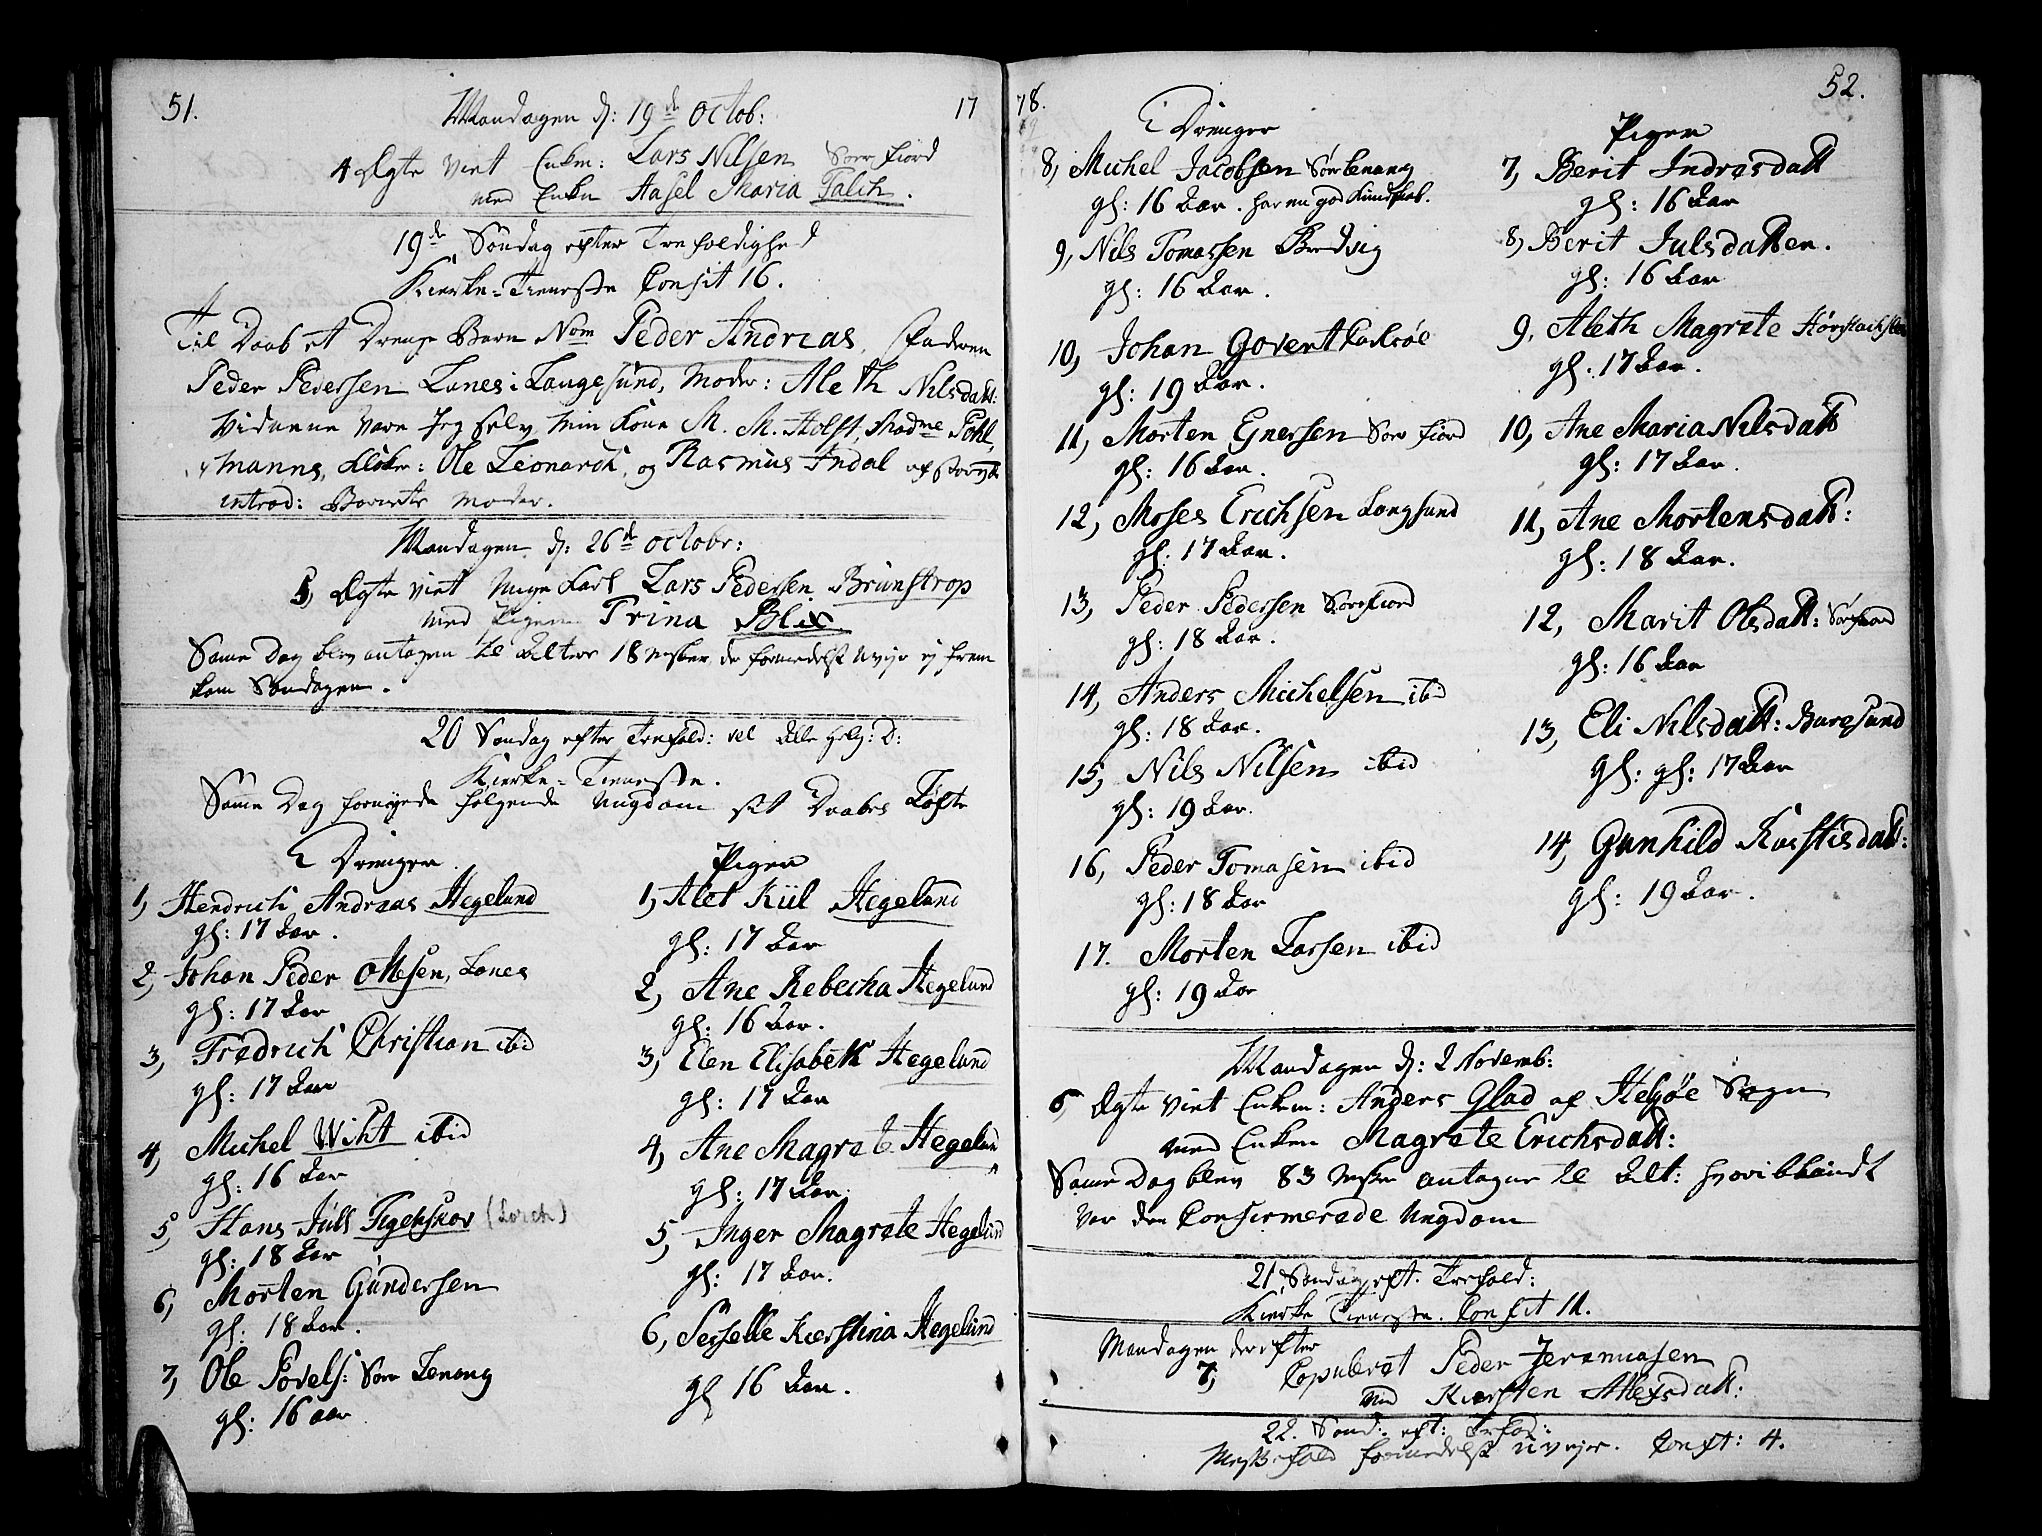 51.
17
Mandagen d: 19de Octob:
4 Ægte viet Enkm: Lars Nilsen Sørfiord
med Enken Hasel Maria Falch.
19de Søndag efter Trefoldighed
Kierke-Tieneste Consit 16.
Til Daab et Drenge Barn Nom Peder Andreas, Faderen
Peder Pedersen Lanes i Langesund, Moder: Aleth Nilsdatt:
Vidnene vare Jeg selv, min Kone M. M. Holst, Madme Pohl,
manns, Klok: Ole Leonardi, og Rasmus Indal af
introd: Barnets Moder.
Mandagen d: 26de Octobr:
5, Ægte viet Unge Karl Lars Pedersen Brunstrop
med Pigen Trina Blix
Same Dag blev antagen til Alters 18 Msker, der formedelst Uvejr ej frem
kom Søndagen.
20 Søndag efter Trefold: vel Alle Helg: D:
Kierke-Tieneste.
Same Dag fornyede følgende Ungdom sit Daabes Løfte
Drenger
1, Hendrich Andreas Hegelund
gl: 17 Aar.
2, Johan Peder Ottesen, Lanes
gl: 17 Aar
3, Fredrich Christian ibid
gl: 17 Aar
4, Michel Wiht ibid
gl: 16 Aar
5, Hans Juls Figenskov (Lorch)
gl: 18 Aar
6, Morten Gundersen
gl: 18 Aar.
7, Ole Povels: Sør Lenang
gl: 16 aar
Piger
1, Alet Kiil Hegelund
gl: 17 Aar
2, Ane Rebecha Hegelund
gl: 16 Aar.
3, Elen Elisabeth Hegelund
gl: 17 Aar
4, Ane Magrete Hegelund
gl: 17 Aar.
5, Inger Magrete Hegelund
gl: 17 Aar.
6, Seiselle Kierstina Hegelund
gl 16 Aar.
78.
52.
Drenger
8, Michel Jacobsen Sørlenang
gl: 16 Aar. har en god Kundskab.
9, Nils Tomassen Bredvig
gl: 16 Aar.
10, Johan Govert Carlsøe
gl: 19 Aar.
11, Morten Gnersen Sørfiord
gl: 16 Aar.
12, Moses Erichsen Langsund
gl: 17 Aar.
13, Peder Pedersen Sørfiord
gl: 18 Aar.
14, Anders Michelsen ibid
gl: 18 Aar.
15, Nils Nilsen ibid
gl: 19 Aar.
16, Peder Tomasen ibid
gl: 18 Aar
17. Morten Larsen ibid
gl: 19 Aar
Piger
7, Berit Indresdatt
gl: 16 Aar
8, Berit Julsdatter.
gl: 16 Aar
9, Aleth Magrete
gl: 17 Aar.
10, Ane Maria Nilsdatt
gl: 17 Aar.
11, Ane Mortensdatt:
gl: 18 Aar.
12, Marit Olsdatt: Sørfiord
gl: 16 Aar
13, Eli Nilsdatt: Buresund
gl: gl: 17 Aar
14, Gunhild Kierstisdatt:
gl: 19 Aar.
Mandagen d: 2 Novemb:
6, Ægte viet Enkm: Anders Glad af Helgøe Sogn
med Enken Magrete Erichsdatt:
Same Dag blev 83 Msker antagne til Alt: hvoriblandt
var den Confirmerede Ungdom
21, Søndag eft. Trefold:
Kierke Tieneste. Consit 11.
Mandagen derefter
7, Copuleret Peder Jeremiasen
med Kiersten Alexsdatt:
22. Sønd: eft: Trefold:
Messefald formedelst Uvejr. Consit: 4.